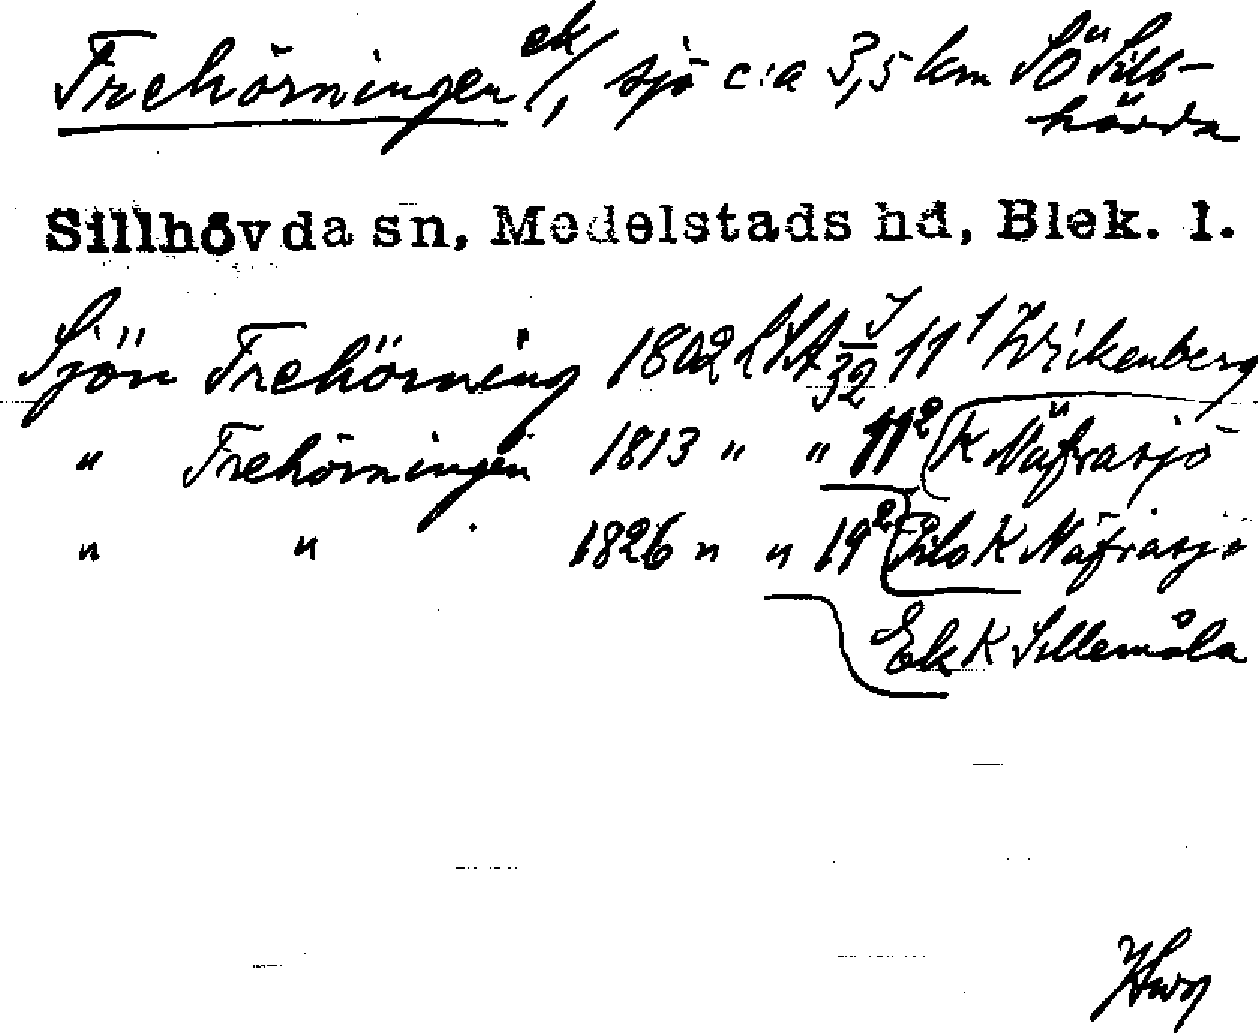 Trehörningen ek/, sjö c:a 3,5 km SÖ Sill-
hövda
Sillhövda sn, Medelstads hd, Blek. l.
Sjön Trehörning 1802 LSA J/32 11¹ Wickenberg
" Trehörningen 1813 " " 11² K Näfrasjö
" " 1826 " " 19² K Näfrasjö
Ek K Sillemåla